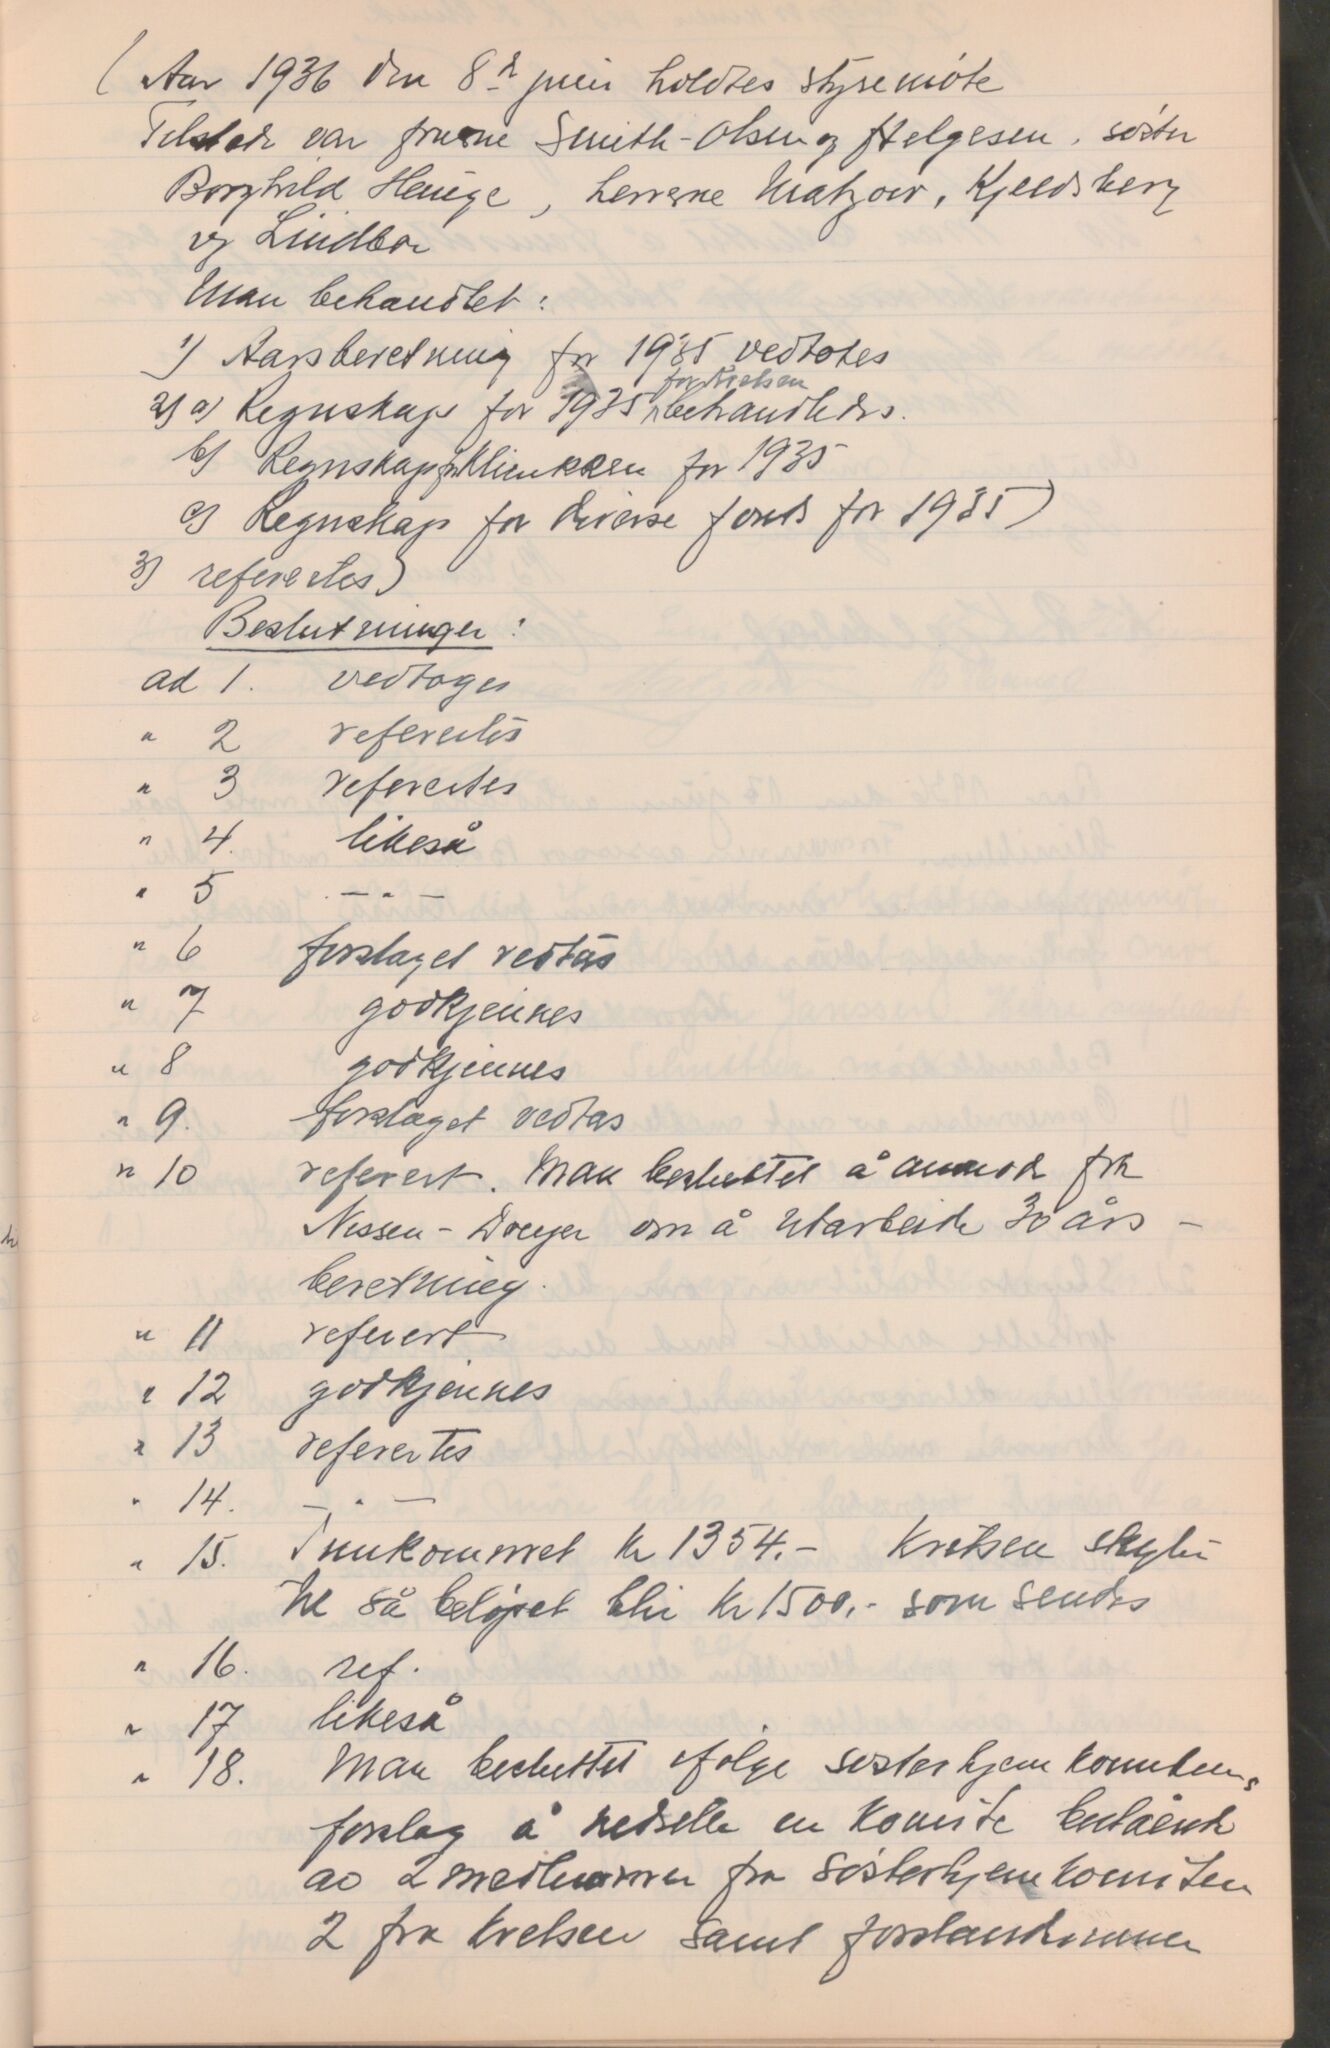 ( Aar 1936 den 8d juni holdtes styremöte
Tilstede var fruene Smith-Olsen og Helgesen, söster
Borghild Hauge, herrerne Matzow, Kjeldsberg
og Lindboe
Man behandlet:
1) Aarsberetning for 1935 vedtokes
for Nielsen
2) a) Regnskap for 1935 behandledes.
b) Regnskap for Klinikken for 1935
c) Regnskap for diverse fonds for 1935)
3) refereres)
Beslutninger:
ad 1. vedtoges
" 2 refereres
" 3 refereres
" 4. likeså
" 5 — " —
" 6 forslaget vedtas
" 7 godkjennes
" 8 godkjennes
" 9. forslaget vedtas
" 10 referert. Man besluttet å anmode fru
Nissen-Dreyer om å utarbeide 30 års-
beretning.
" 11 referert
" 12 godkjennes
" 13 refereres
" 14. — " —
" 15. Innkommet kr 1354.- Kretsen skyter
til så belöpet blir kr 1500.- som sendes
" 16. ref.
" 17 likeså
" 18. Man besluttet ifölge sösterhjemkomiteens
forslag å nedsette en komite bestående
av 2 medlemmer fra sösterhjemkomiteen
2 fra kretsen samt forstanderinnen